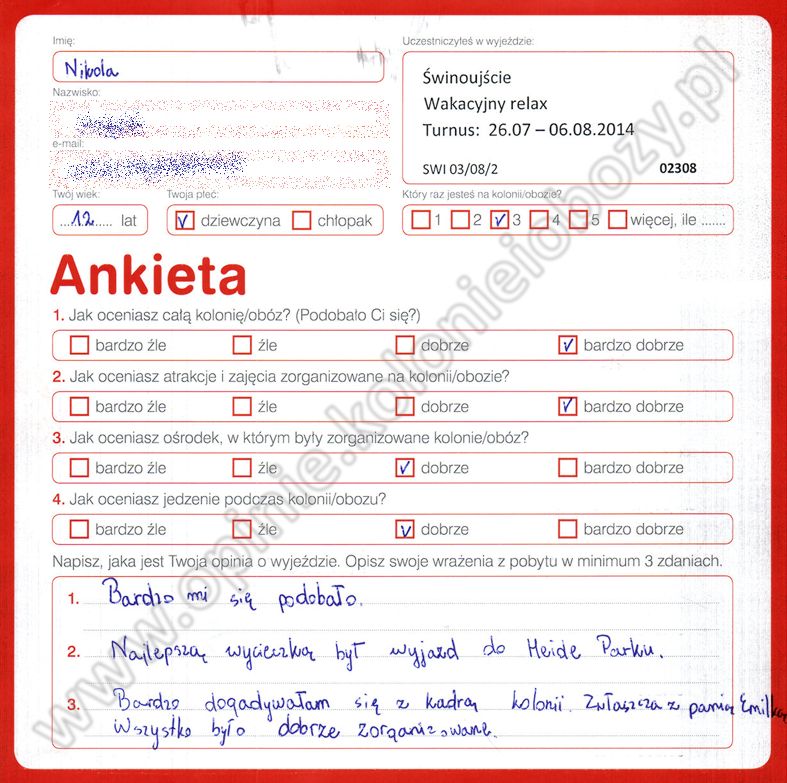 Imię:
Nikola
Nazwisko:
e-mail:
Twój wiek:
12 lat
Twoja płeć:
dziewczyna chłopak
Uczestniczyłeś w wyjeździe:
Świnoujście
Wakacyjny relax
Turnus: 26.07 – 06.08.2014
SWI 03/08/2 02308
Który raz jesteś na kolonii/obozie?
1 2 3 4 5 więcej, ile ......
Ankieta
1. Jak oceniasz całą kolonię/obóz? (Podobało Ci się?)
bardzo źle źle dobrze bardzo dobrze
2. Jak oceniasz atrakcje i zajęcia zorganizowane na kolonii/obozie?
bardzo źle źle dobrze bardzo dobrze
3. Jak oceniasz ośrodek, w którym były zorganizowane kolonie/obóz?
bardzo źle źle dobrze bardzo dobrze
4. Jak oceniasz jedzenie podczas kolonii/obozu?
bardzo źle źle dobrze bardzo dobrze
Napisz, jaka jest Twoja opinia o wyjeździe. Opisz swoje wrażenia z pobytu w minimum 3 zdaniach.
1. Bardzo mi się podobało.
2. Najlepszą wycieczką był wyjazd do Heide Parku.
3. Bardzo dogadywałam się z kadrą kolonii. Zwłaszcza z panią Emilką
Wszystko było dobrze zorganizowane.
www.opinie.kolonieiobozy.pl